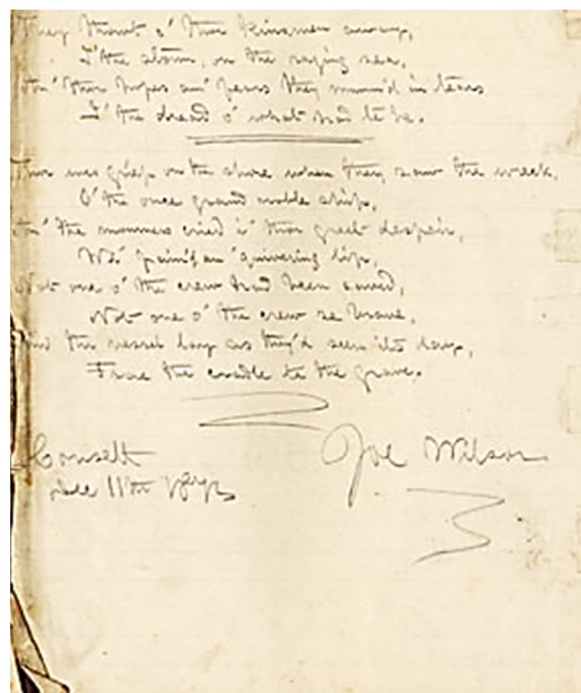 They thowt o' thor kinsmen away,
I' the storm, on the raging sea,
An' thor hopes an' fears they murn'd in tears
I' the dread o' what had te be.
Thor was grief on the shore when they saw the wreck,
O' the once grand noble ship,
An' the mummers cried i' thor great despair,
Wi' pain'd an' quivering lip,
Not one o' the crew had been saved,
Not one o' the crew se brave,
And the vessel lay as they'd seen its day,
Frae the cradle te the grave.
Consett
11th
Joe Wilson